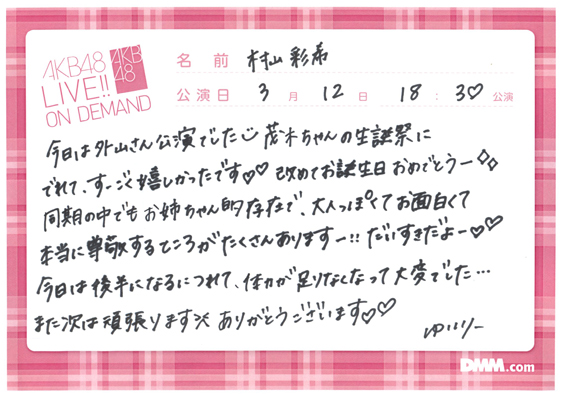 AKB48
LIVE!!
ON DEMAND
AKB
48
名前 村山彩希
公演日 3月12日 18:30♡公演
今日は外山さん公演でした☺ 茂木ちゃんの生誕祭に
でれて、すーごく嬉しかったです♡♡ 改めてお誕生日おめでとうー✧✧
同期の中でもお姉ちゃん的存在で、大人っぽくてお面白くて
本当に尊敬するところがたくさんありますー!! だいすきだよー♡♡
今日は後半になるにつれて、体力が足りなくなって大変でした…
また次は頑張ります ありがとうございます♡♡
ゆいりー
DMM.com